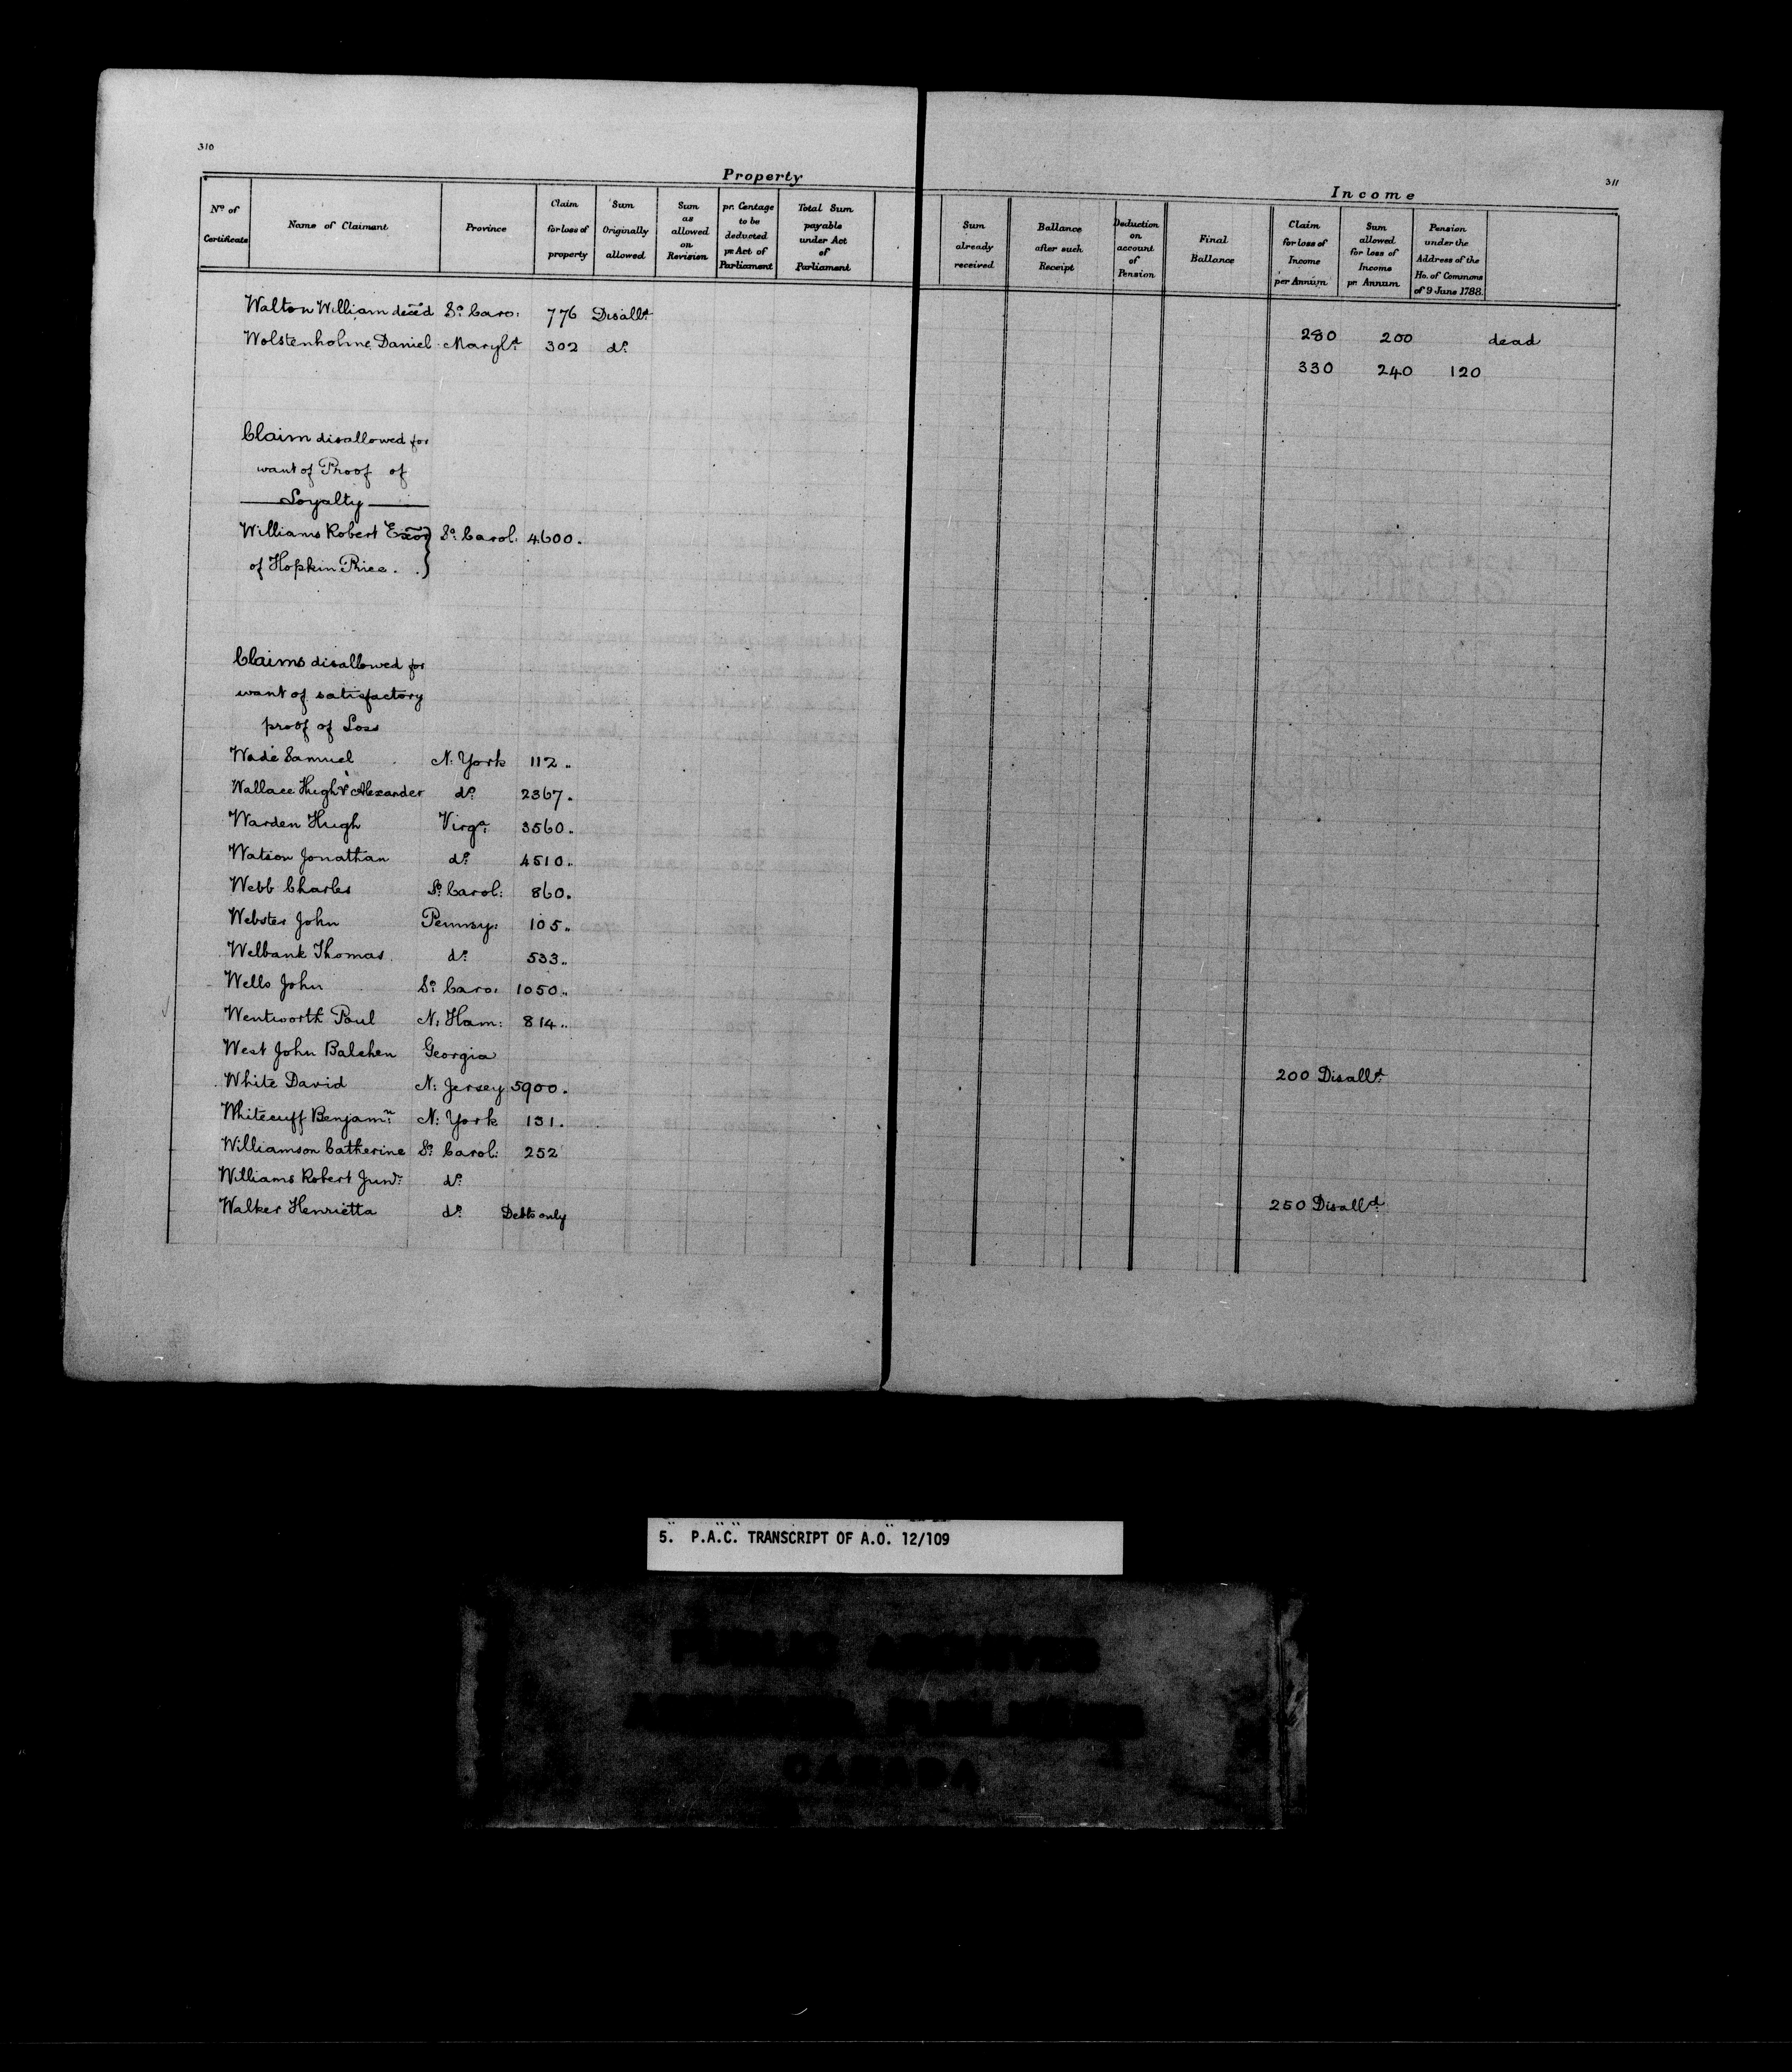 310
311
Property
Income
No. of Certificate
Name of Claimant
Province
Claim for loss of property
Sum Originally allowed
Sum as allowed on Revision
pr. Centage to be deducted pr Act of Parliament
Total Sum payable under Act of Parliament
Sum already received
Ballance after such Receipt
Deduction on account of Pension
Final Ballance
Claim for loss of Income per Annum
Sum allowed for loss of Income pr. Annum
Pension under the Address of the Ho. of Commons of 9 June 1788.
Walton William decéd So. Caro: 776 Disalld. 280 200 dead
Wolstenholme Daniel Maryld. 302 do. 330 240 120
Claim disallowed for
want of Proof of
Loyalty
Williams Robert Exor} So. Carol: 4600.
of Hopkin Price.
Claims disallowed for
want of satisfactory
proof of Loss
Wade Samuel N. York 112..
Wallace Hugh & Alexander do. 2367.
Warden Hugh Virga. 3560..
Watson Jonathan do. 4510..
Webb Charles So. Carol: 860.
Webster John Pennsy: 105..
Welbank Thomas do. 533..
Wells John So. Caro: 1050..
Wentworth Paul N: Ham: 814..
West John Balchen Georgia 200 Disalld.
White David N: Jersey 5900.
Whitecuff Benjamn. N: York 131.
Williamson Catherine So. Carol: 252
Williams Robert Junr. do. 250 Disalld.
Walker Henrietta do. Debts only
5. P.A.C. TRANSCRIPT OF A.O. 12/109
PUBLIC ARCHIVES
ARCHIVES PUBLIQUES
CANADA